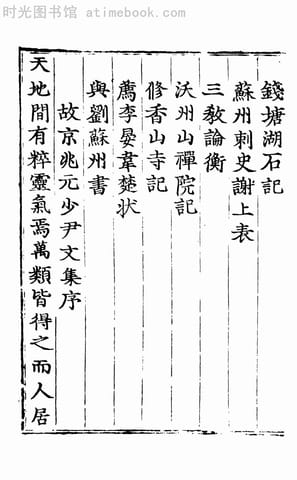 时光图书馆 - atimebook.com
錢塘湖石記
蘇州刺史謝上表
三敎論衡
沃州山禪院記
修香山寺記
薦李晏韋楚狀
與劉蘇州書
故京兆元少尹文集序
天地間有粹靈氣焉萬類皆得之而人居